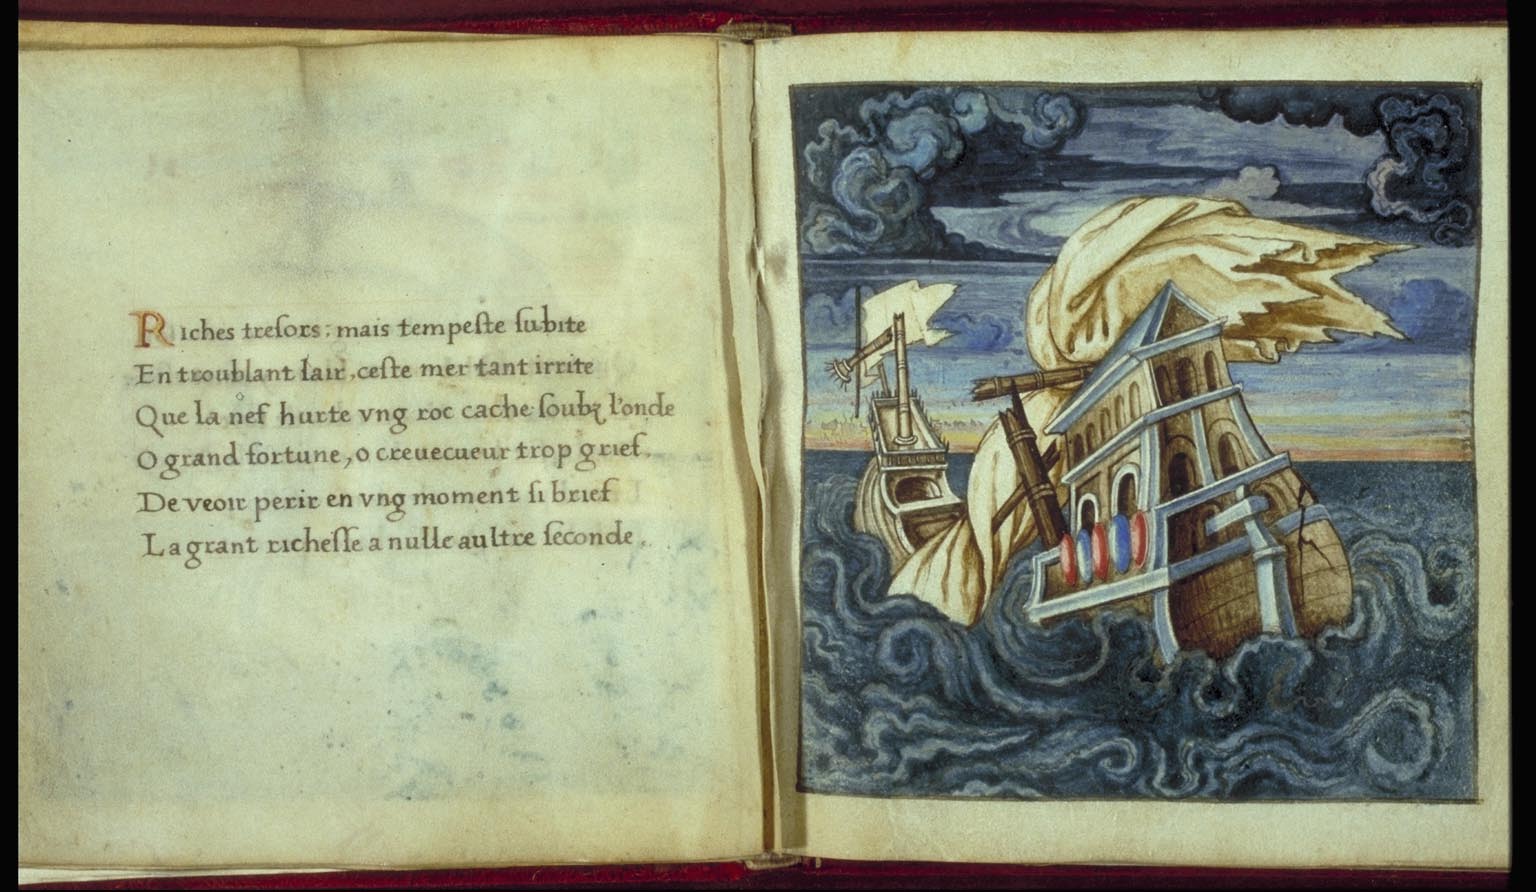 Riches tresors: mais tempeste subite
En troublant lair, ceste mer tant irrite
Que la nef hurte vng roc cache soubz l'onde
O grand fortune, o creuecueur trop grief,
De veoir perir en vng moment si brief
La grant richesse a nulle aultre seconde.